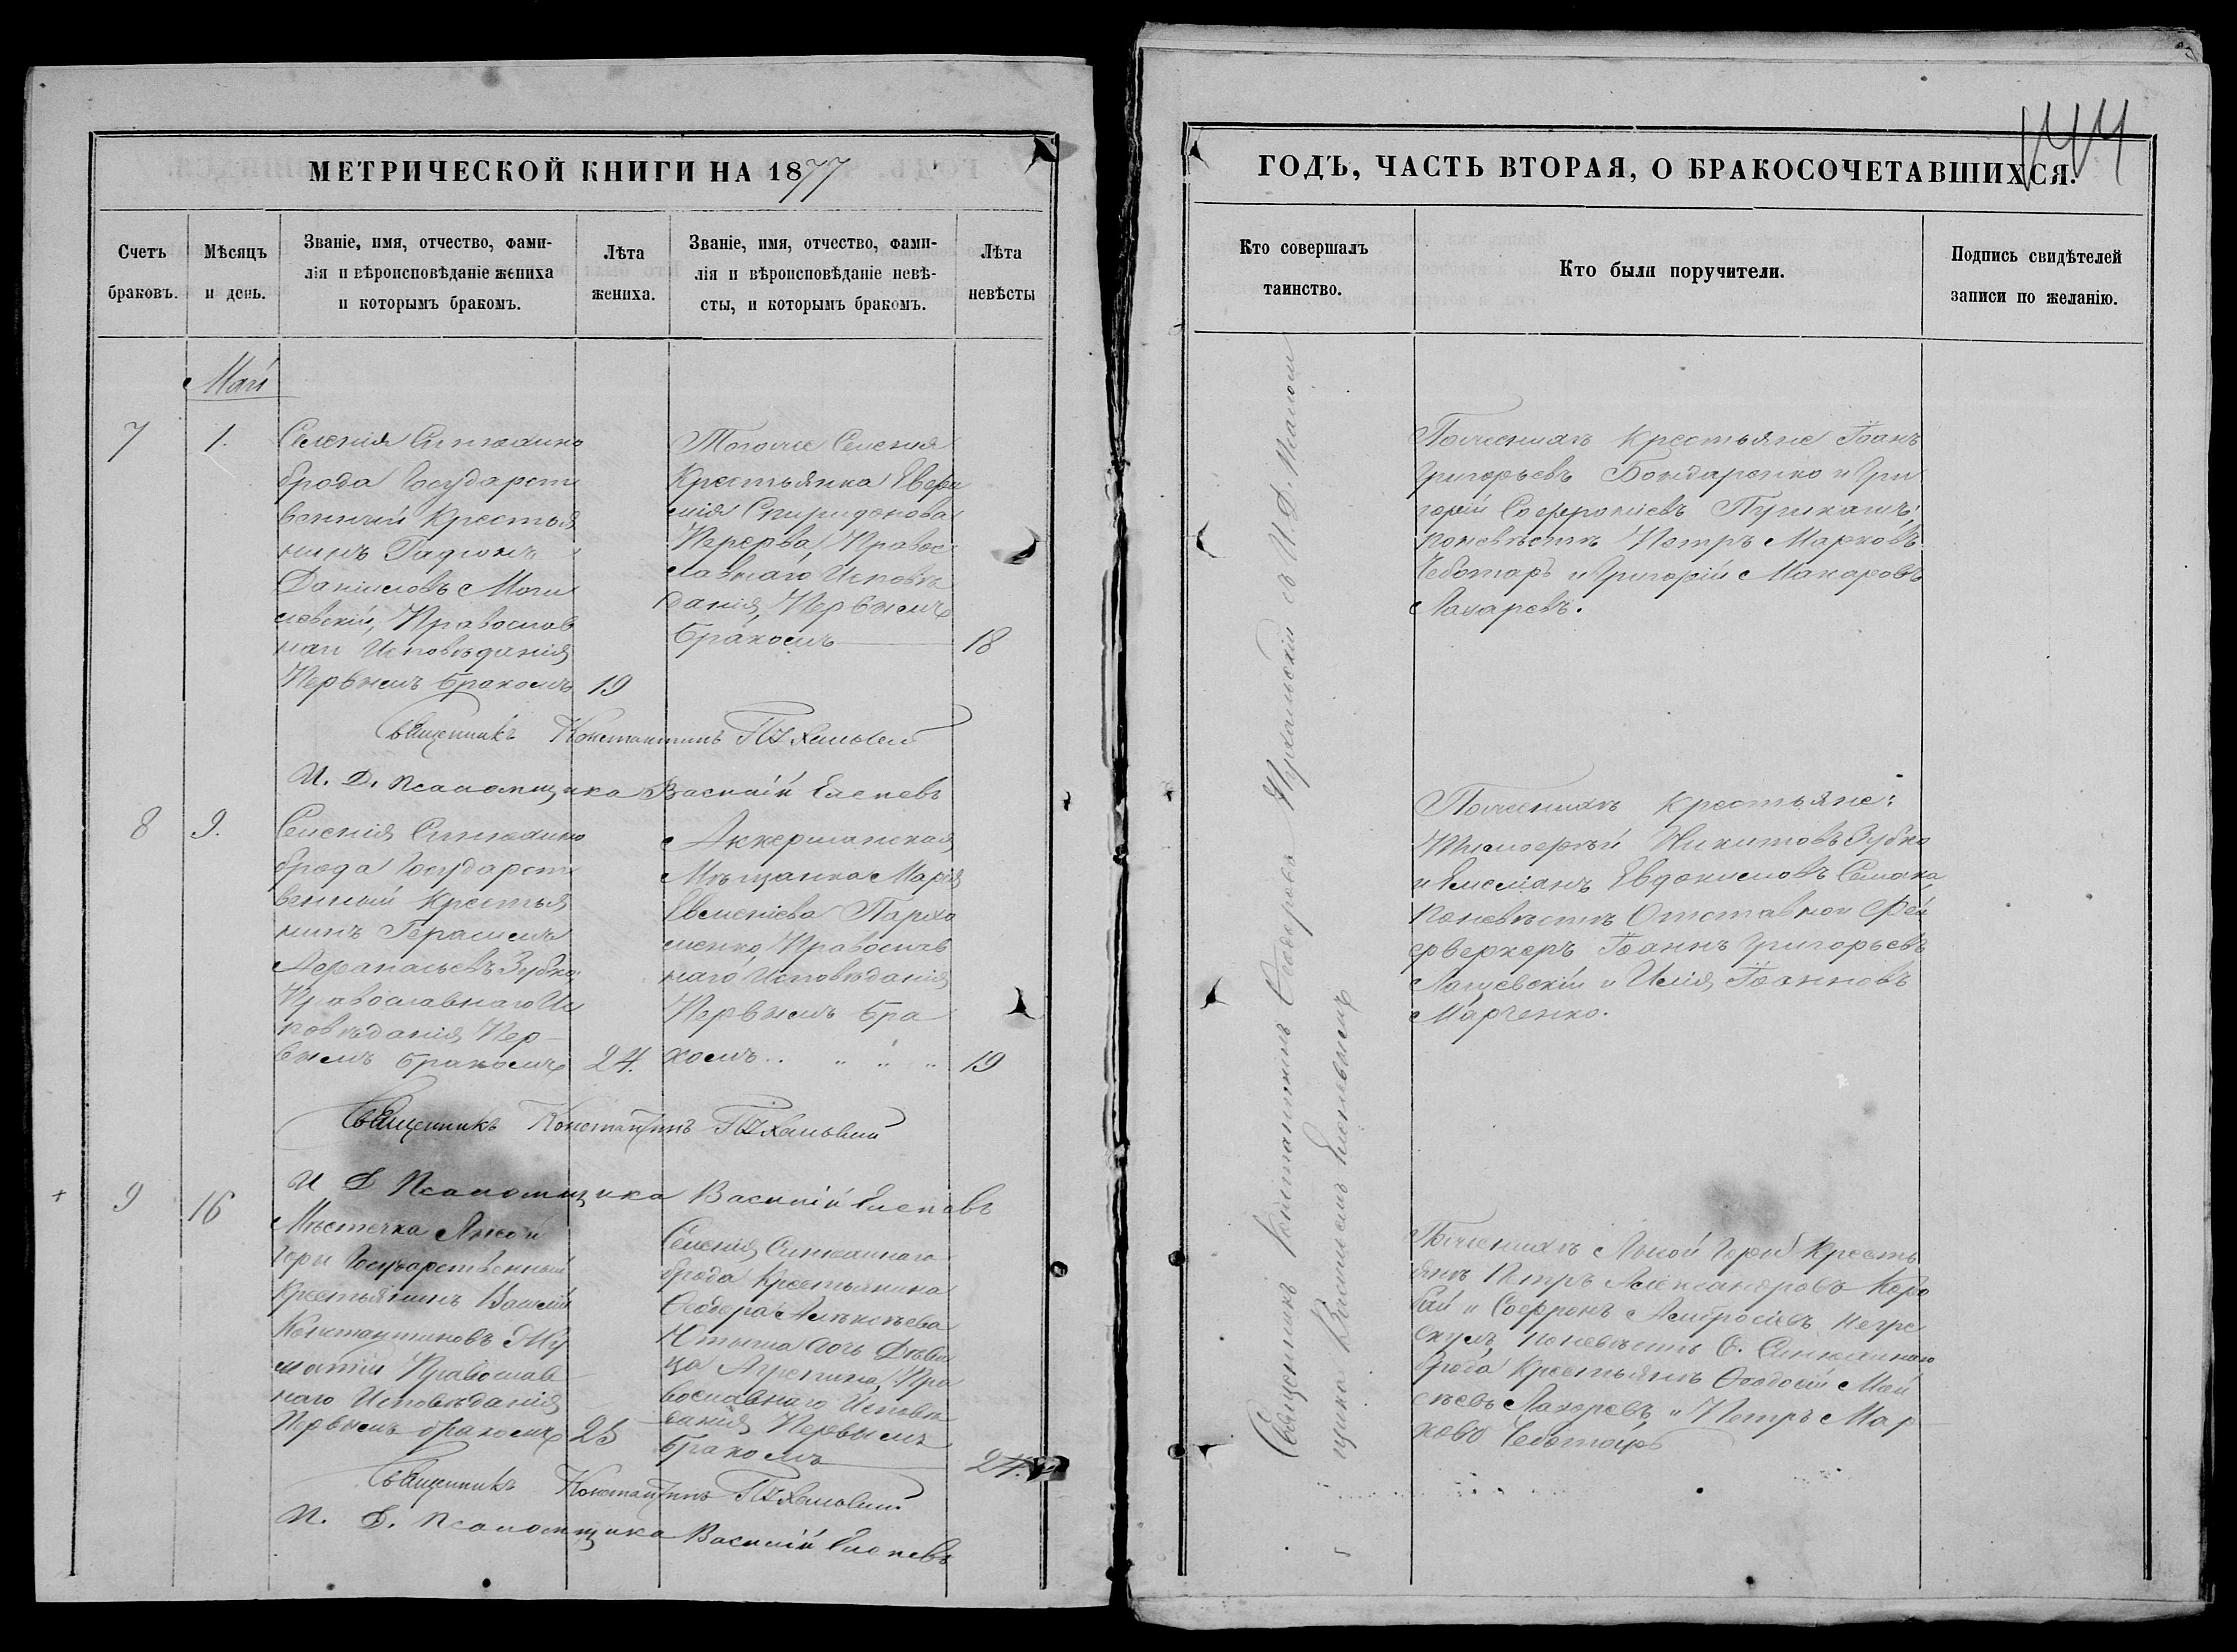 МЕТРИЧЕСКОЙ КНИГИ НА 1877
Счетъ браковъ.
Мѣсяцъ и день.
Званіе, имя, отчество, фами-
лія и вѣроисповѣданіе жениха
и которымъ бракомъ.
Лѣта жениха.
Званіе, имя, отчество, фами-
лія и вѣроисповѣданіе невѣ-
сты, и которымъ бракомъ.
Лѣта невѣсты
Май
7
1.
Селенія
брода Государст
венный Крестья
нинъ Родіонъ
Даниловъ Моги
левскій, Православ
наго Исповѣданія
Первымъ бракомъ
19
Тогоже Селенія
Крестьянка Евфи
мія Спиридонова
Перерва, Правос
лавнаго Исповѣ
данія, Первымъ
бракомъ
18
Священникъ Константинъ
И. Д. Псаломщика Василій
8
9.
Селенія
брода Государст
венный Крестья
нинъ Герасимъ
Афанасьевъ Зубко,
Православнаго Ис
повѣданія, Пер-
вымъ бракомъ
24.
Аккерманская
Мѣщанка Марія
Евменіева Пархо
менко, Православ
наго Исповѣданія
Первымъ бра
комъ
19
Священникъ Константинъ
И Д Псаломщика Василій
9
16
Мѣстечка Лысой
Горы Государственный
Крестьянинъ Василій
Константиновъ
Православ
наго Исповѣданія
Первымъ бракомъ
25
Селенія
брода Крестьянина
Ѳеодора
дочь Дѣви
ца Агрепина, Пра
вославнаго Исповѣ
данія Первымъ
бракомъ
24.
Священникъ Константинъ
И. Д. Псаломщика Василій
144
ГОДЪ, ЧАСТЬ ВТОРАЯ, О БРАКОСОЧЕТАВШИХСЯ.
Кто совершалъ таинство.
Кто были поручители.
Подпись свидѣтелей
записи по желанію.
Священникъ Константинъ Ѳеодоровъ съ И. Д. Псалом
щика Василіемъ
Поженихѣ Крестьяне Іоанъ
Григорьевъ Бондаренко и Гри
горій Софроніевъ
поневѣстѣ Петръ Марковъ
Чеботарь и Григорій Макаровъ
Лазаревъ.
Поженихѣ Крестьяне:
Тимофѣй Никитовъ Зубко
и Емеліанъ Евдокимовъ
поневѣстѣ Отставной Фей
ерверкеръ Іоаннъ Григорьевъ
и Илія Іоанновъ
Марченко.
Поженихѣ Лысой Горы Кресть
янѣ Петръ Александровъ Коро
бай и Софронъ Амвросіевъ Негре
скулъ, поневѣстѣ С.
брода Крестьянѣ Ѳеодосій Мой
сѣевъ Лазоревъ и Петръ Мар
ковъ Чеботарь